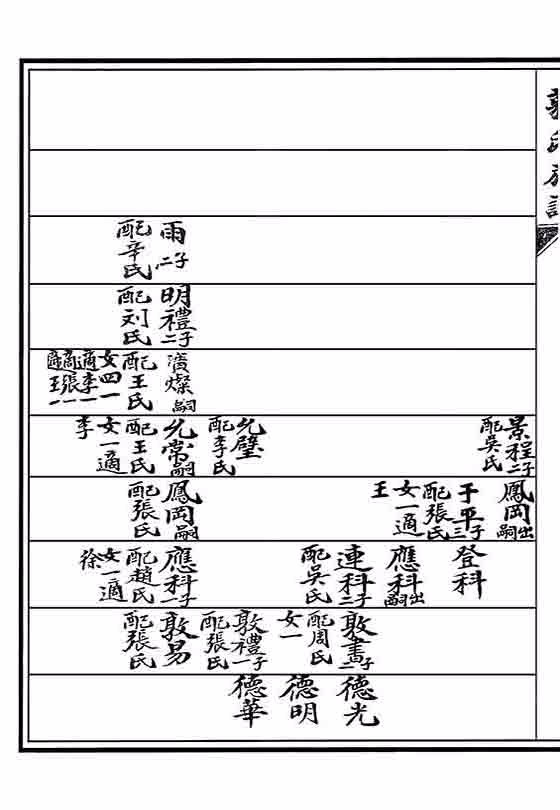 雨二子
配辛氏
明禮二子
配刘氏
燦嗣
配王氏
女四一
適李一
適張一
適王一
景程二子
配吳氏
允璧
配李氏
允常嗣
配王氏
女一適
李
鳳岡出嗣
于平三子
配張氏
女一適
王
鳳岡嗣
配張氏
登科
應科出嗣
連科二子
配吳氏
應科一子
配趙氏
女一適
徐
敦書二子
配周氏
女一
敦禮一子
配張氏
敦易
配張氏
德光
德明
德華